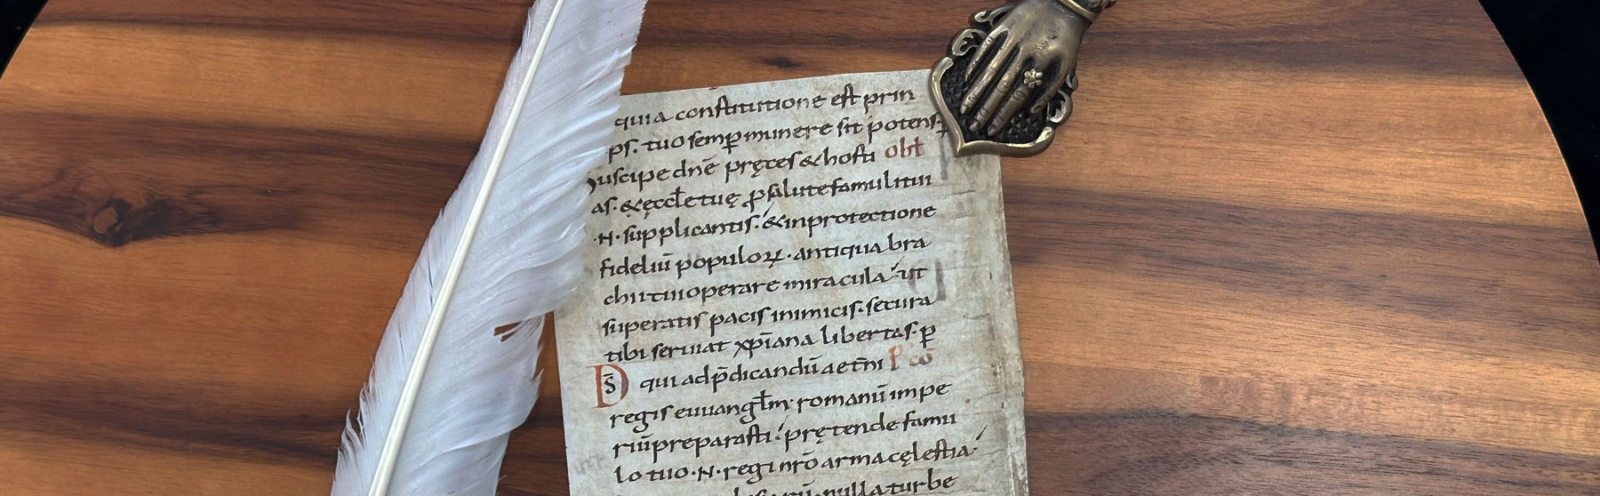 quia constitutione est prin
ps. tuo semp̄ munere sit potens. p
uscipe dnē pręces & hosti oblt
as. & ęccłe tuę ꝓ salute famuli tui
.N. supplicantis. & in protectione
fideliū populoꝝ. antiqua bra
chii tui operare miracula ut
superatis pacis inimicis. secura
tibi seruiat xp̄iana libertas. p̄
Ds̄ qui ad p̄dicandū aetn̄i P cō
regis euuanglm̄ romanū impe
riū preparasti. prętende famu
lo tuo .N. regi nrō arma cęlestia
nulla turbe